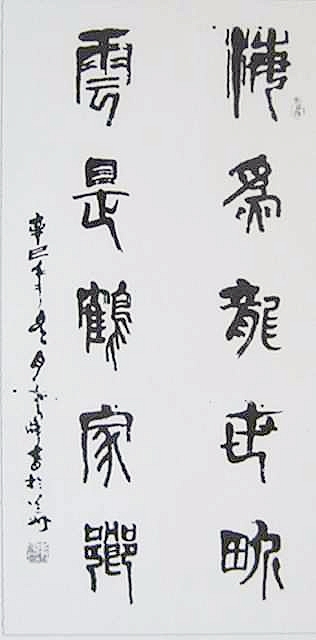 海爲龍世畍
雲是鶴家鄉
辛巳年冬月書於